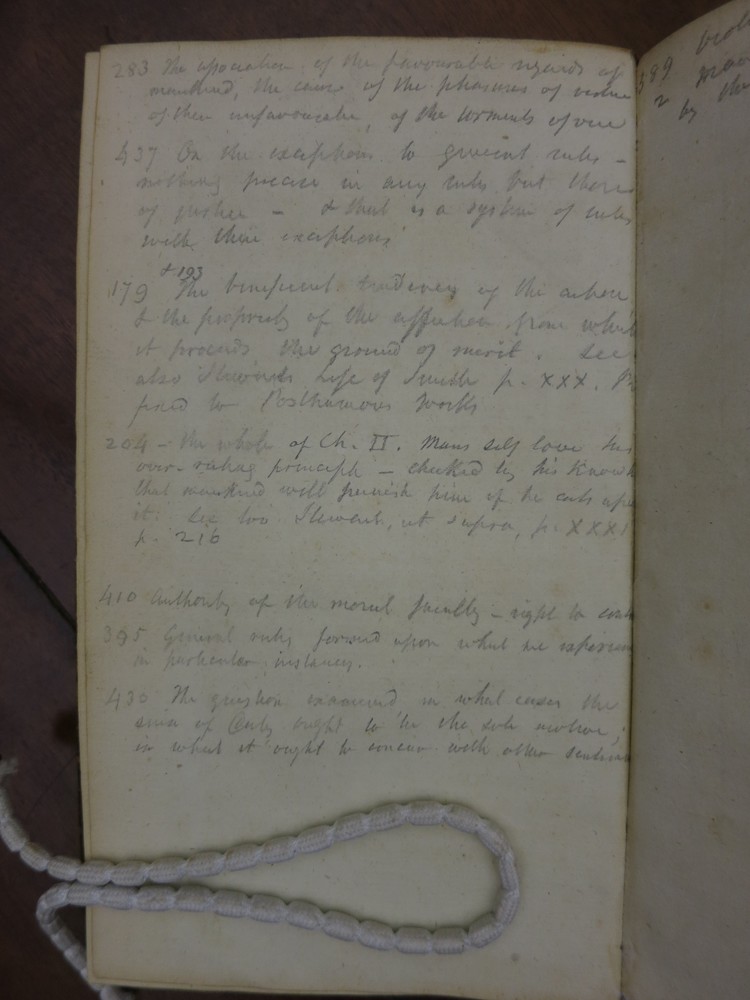 283 The association of the favourable regards of
mankind, the cause of the pleasures of virtue
of their unfavourable, of the torments of vice
437 On the exceptions to general rules -
nothing precise in any rules but those
of justice - & that is a system of rules
with their exceptions
& 193
179 The beneficent tendency of the action
& the propriety of the affection from which
it proceeds the ground of merit. See
also Stewart's Life of Smith p. XXX.
fixed to Posthumous Works
204 - the whole of Ch. II. Mans self love his
over-ruling principle - checked by his
that mankind will punish him if he acts upon
it. See too Stewart, ut supra, p. XXXI
p. 216
410 Authority of the moral faculty - right to
395 General rules formed upon what we experience
in particular instances.
430 The question examined, in what cases the
sense of Duty ought to be the sole motive;
in what it ought to concur with other
389
by the